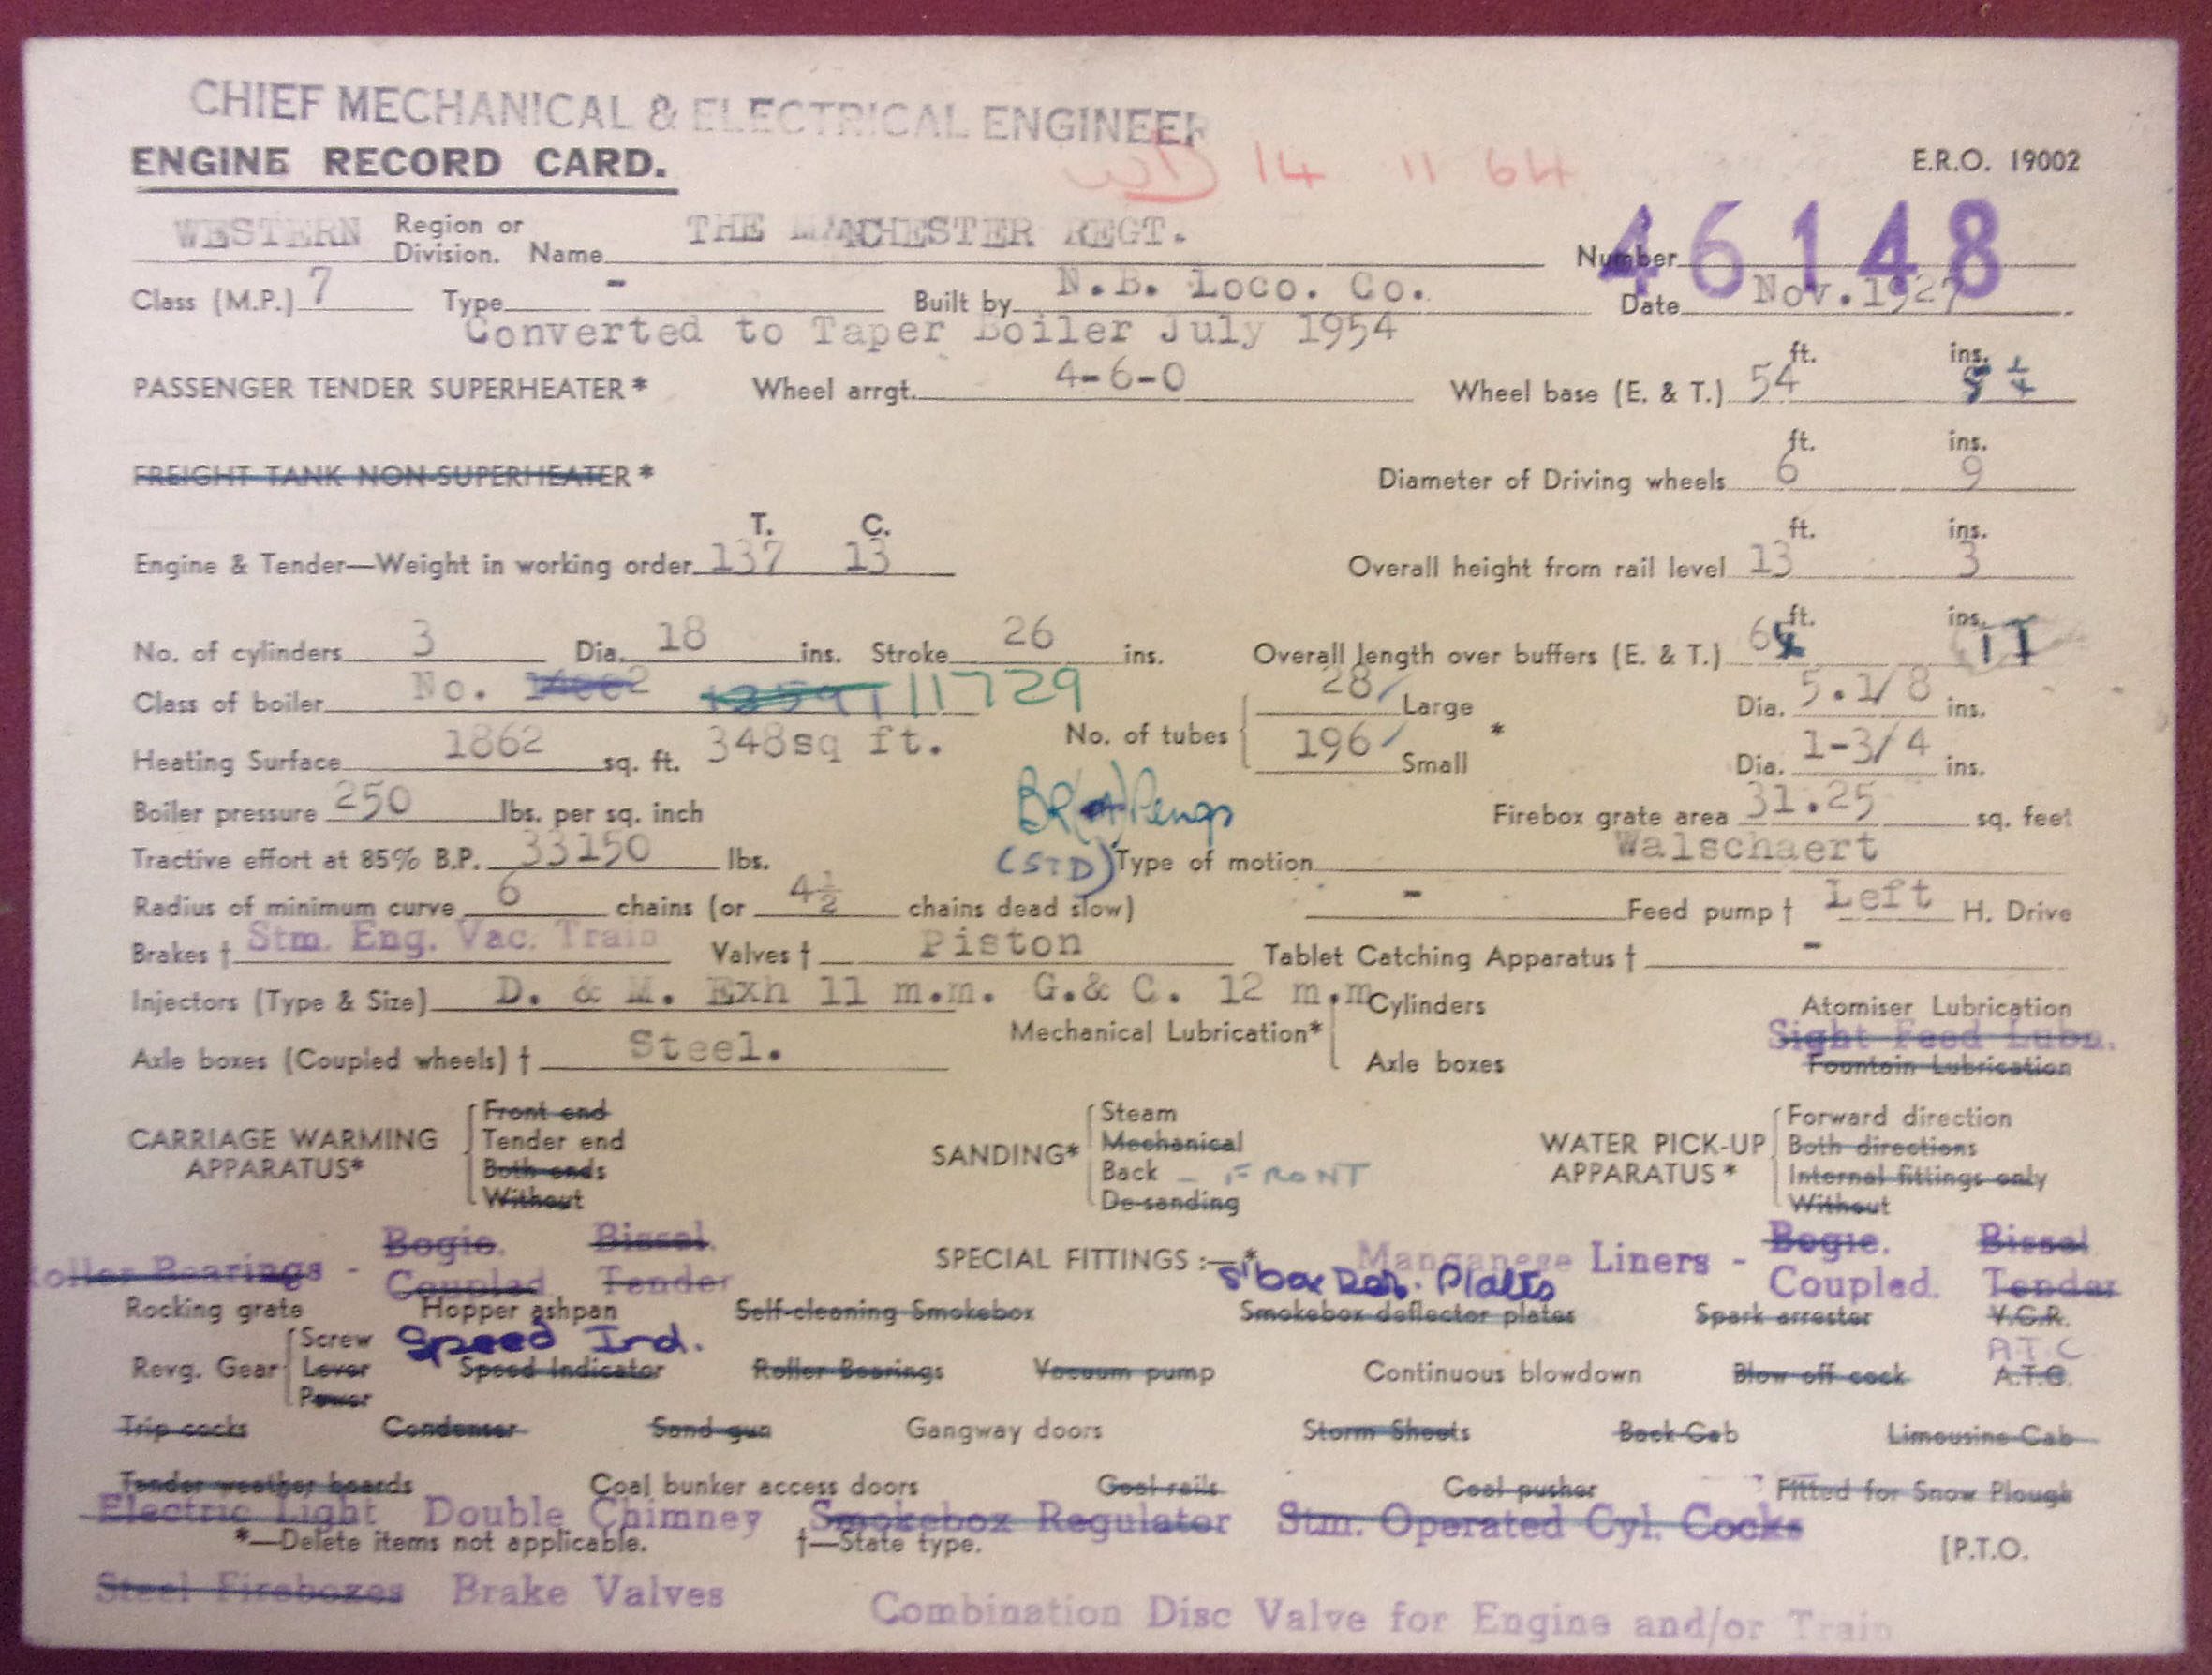 CHIEF MECHANICAL & ELECTRICAL ENGINEER
ENGINE RECORD CARD.
WD 14 11 64
E.R.O. 19002
WESTERN Region or Division. Name THE MANCHESTER REGT. Number 46148
Class (M.P.) 7 Type - Built by N.B. Loco. Co. Date Nov.1927
Converted to Taper Boiler July 1954
PASSENGER TENDER SUPERHEATER * Wheel arrgt. 4-6-0 Wheel base (E. & T.) 54 ft. ins.
FREIGHT TANK NON-SUPERHEATER * Diameter of Driving wheels 6 ft. 9 ins.
Engine & Tender—Weight in working order 137 T. 13 C. Overall height from rail level 13 ft. 3 ins.
No. of cylinders 3 Dia. 18 ins. Stroke 26 ins. Overall length over buffers (E. & T.) ft. 11 ins.
Class of boiler No. 11729 No. of tubes 28 Large * Dia. 5.1/8 ins.
Heating Surface 1862 sq. ft. 348sq ft. 196 Small Dia. 1-3/4 ins.
Boiler pressure 250 lbs. per sq. inch Firebox grate area 31.25 sq. feet
Tractive effort at 85% B.P. 33150 lbs. (STD) Type of motion Walschaert
Radius of minimum curve 6 chains (or 4½ chains dead slow) - Feed pump † Left H. Drive
Brakes † Stm. Eng. Vac. Train Valves † Piston Tablet Catching Apparatus † -
Injectors (Type & Size) D. & M. Exh 11 m.m. G.& C. 12 m.m Cylinders Atomiser Lubrication
Mechanical Lubrication* Sight Feed Lubn.
Axle boxes (Coupled wheels) † Steel. Axle boxes Fountain Lubrication
CARRIAGE WARMING APPARATUS* Front end Tender end Both ends Without
SANDING* Steam Mechanical Back - FRONT De-sanding
WATER PICK-UP APPARATUS * Forward direction Both directions Internal fittings only Without
oller Bearings - Bogie. Bissel. Coupled Tender
SPECIAL FITTINGS :—* Manganese Liners - Bogie. Bissel Coupled. Tender
S'box Def. Plates
Rocking grate Hopper ashpan Self-cleaning Smokebox Smokebox deflector plates Spark arrester V.C.R.
Speed Ind. A.T.C
Revg. Gear Screw Lever Power Speed Indicator Roller Bearings Vacuum pump Continuous blowdown Blow off cock A.T.C.
Trip cocks Condenser Sand gun Gangway doors Storm Sheets Back Cab Limousine Cab
Tender weather boards Coal bunker access doors Coal rails Coal pusher Fitted for Snow Plough
Electric Light Double Chimney Smokebox Regulator Stm. Operated Cyl. Cocks
*—Delete items not applicable. †—State type. [P.T.O.
Steel Fireboxes Brake Valves Combination Disc Valve for Engine and/or Train